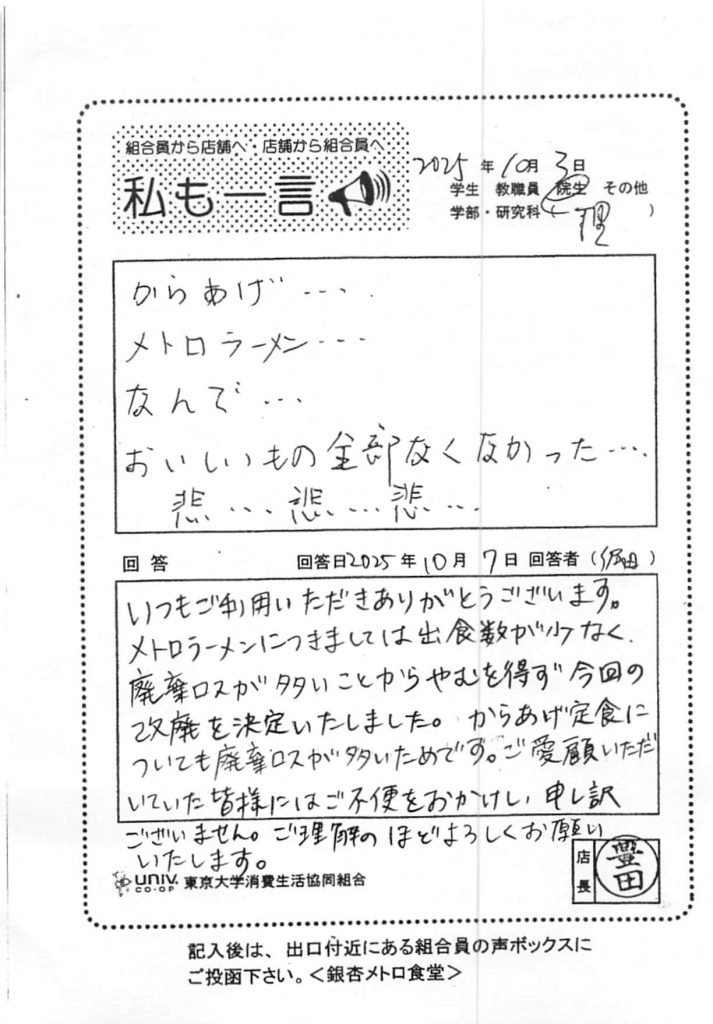 組合員から店舗へ・店舗から組合員へ
私も一言
2025年10月3日
学生 教職員 院生 その他
学部・研究科（理）
からあげ….
メトロラーメン…
なんで…
おいしいもの全部なくなかった….
悲…悲…悲…
回答 回答日2025年10月7日 回答者（ ）
いつもご利用いただきありがとうございます。
メトロラーメンにつきましては出食数が少なく、
廃棄ロスが多いことからやむを得ず今回の
改廃を決定いたしました。からあげ定食に
ついても廃棄ロスが多いためです。ご愛顧いただ
いていた皆様にはご不便をおかけし、申し訳
ございません。ご理解のほどよろしくお願い
いたします。
店長 豊田
UNIV. CO-OP 東京大学消費生活協同組合
記入後は、出口付近にある組合員の声ボックスに
ご投函下さい。＜銀杏メトロ食堂＞